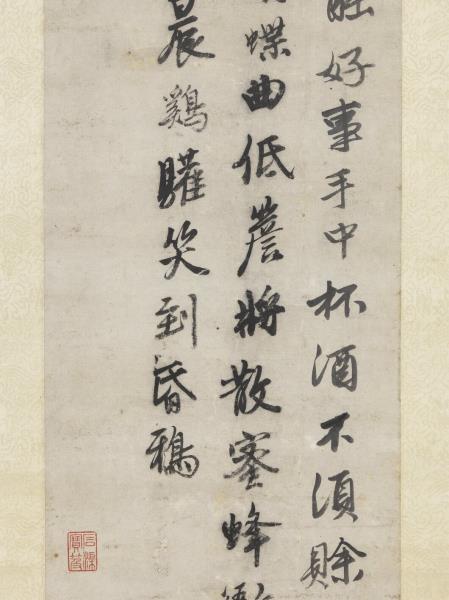 好事手中杯酒不須賒
蝶曲低簷將散蜜蜂
晨鷄笑到昏鴉